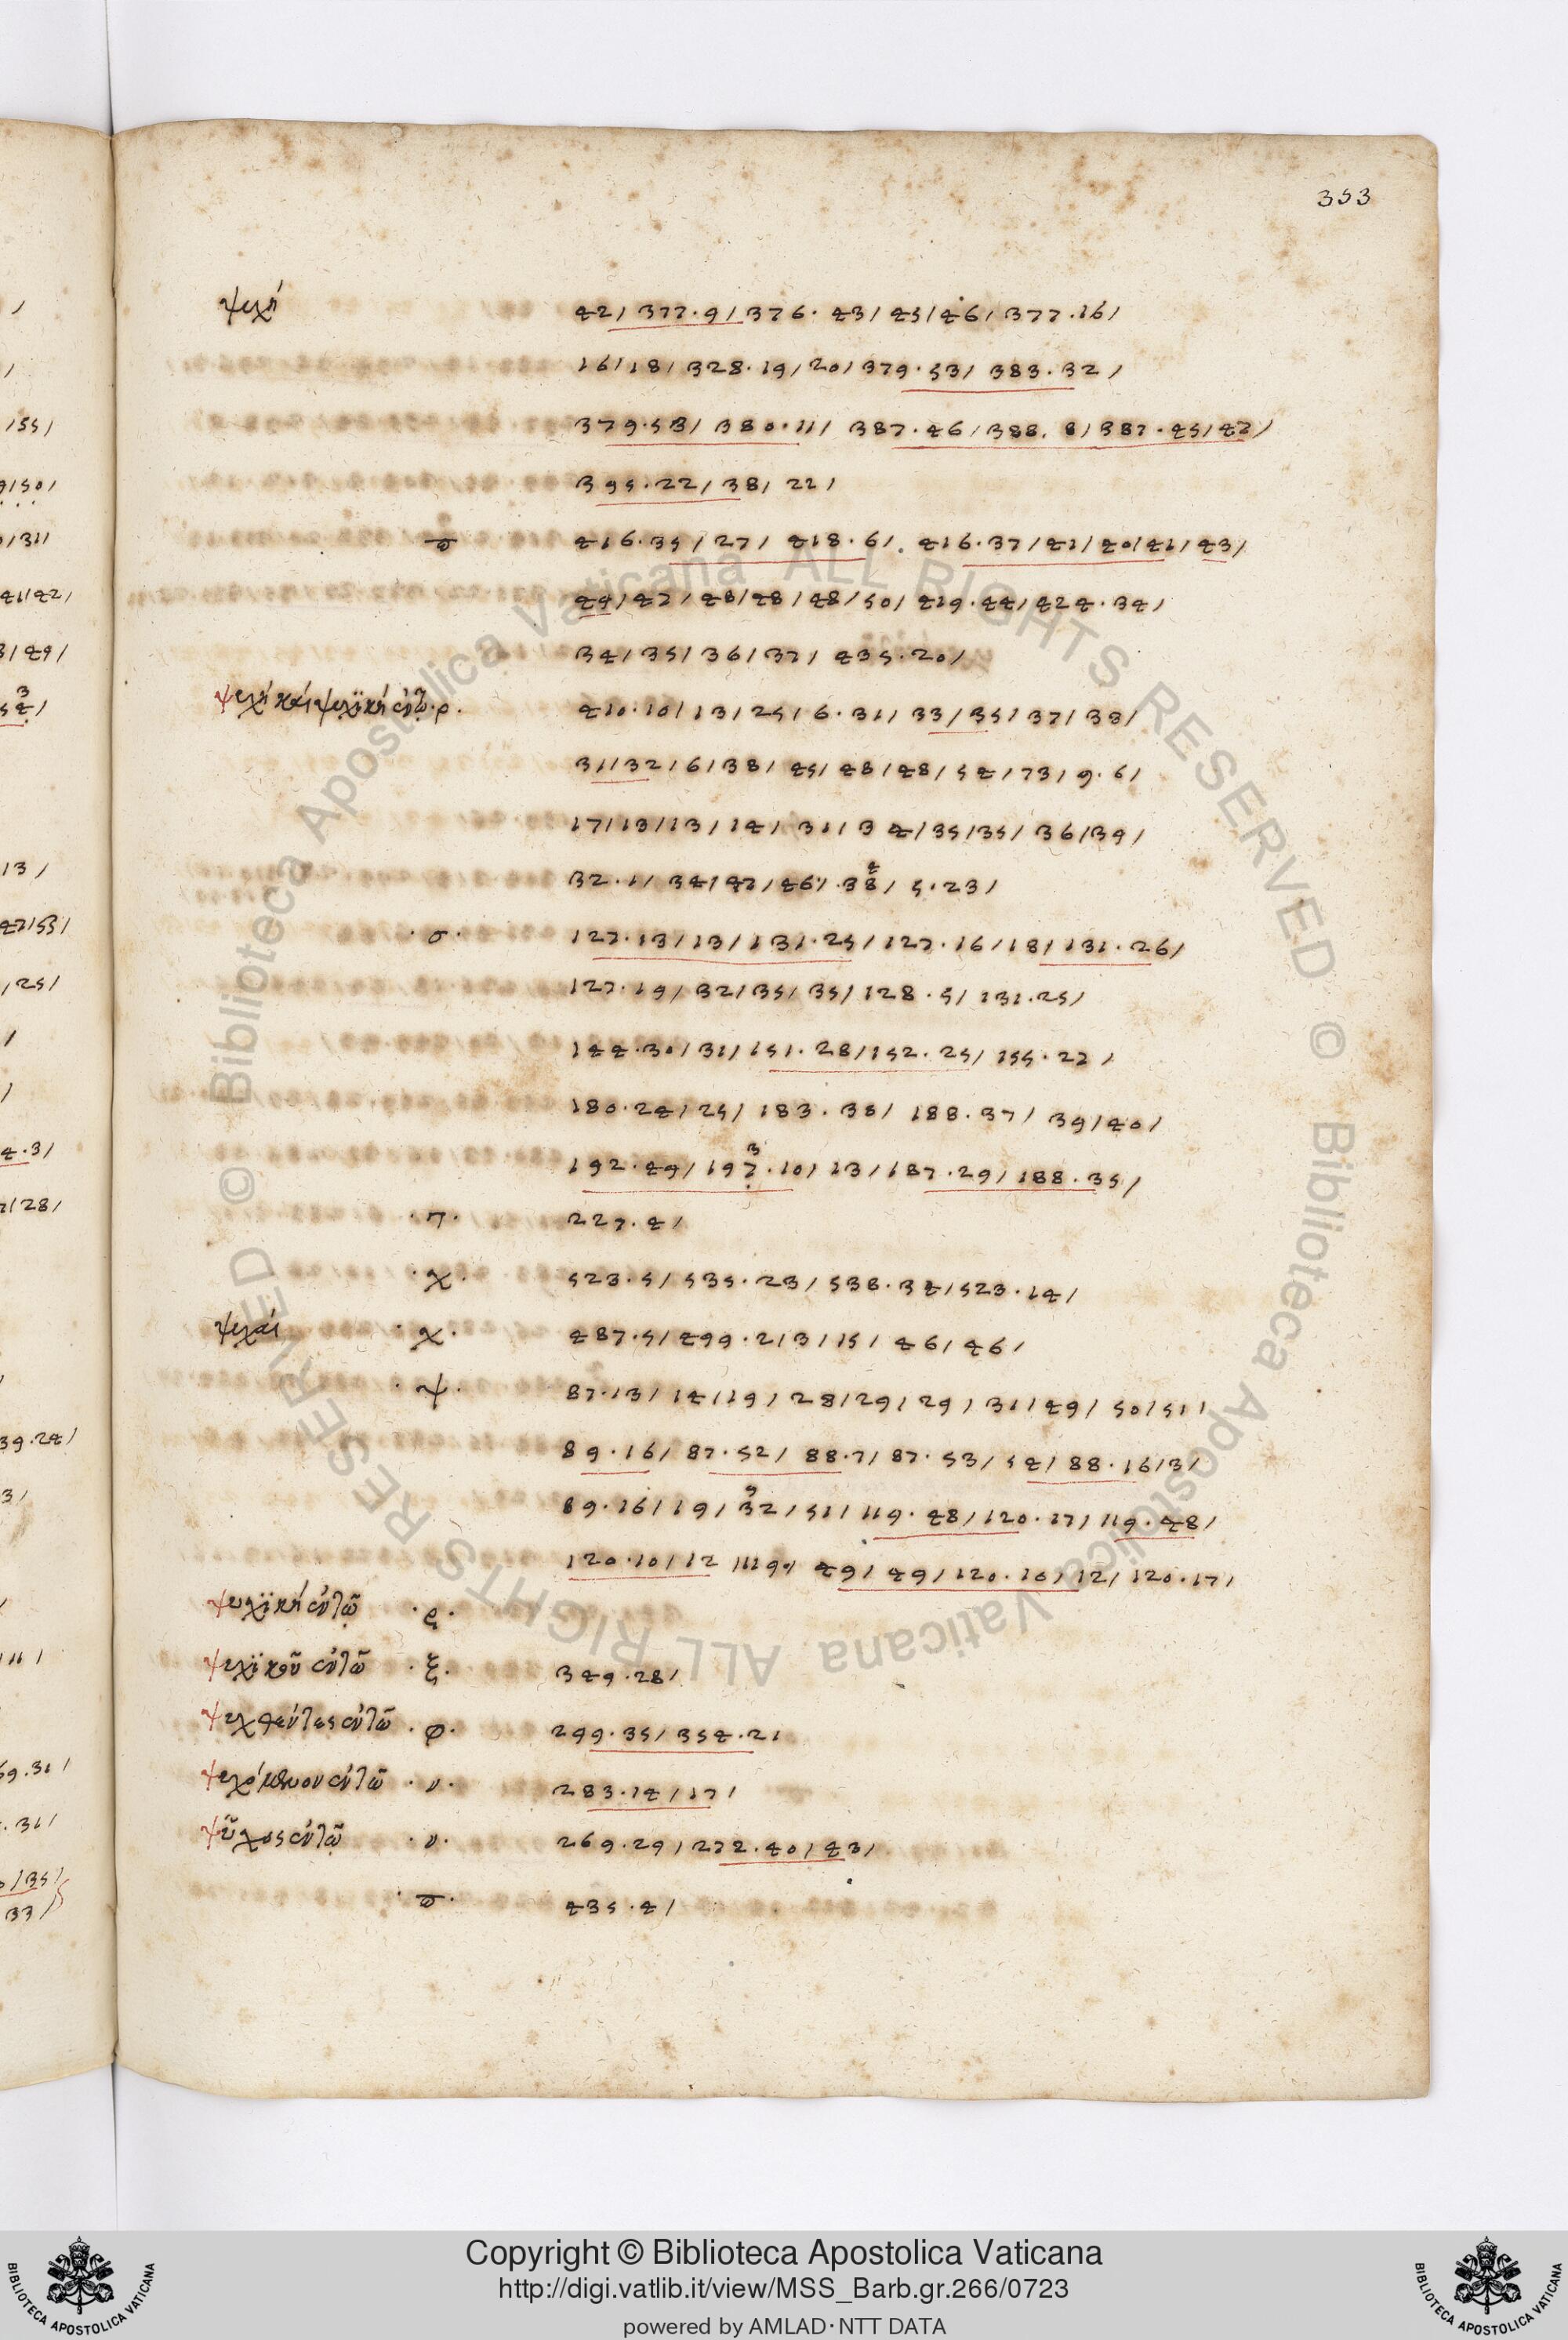 353
ψυχή 42/ 377.9/ 376. 43/ 45/ 46/ 377.16/
16/ 18/ 328.19/ 20/ 379.53/ 383.32/
379.53/ 380.11/ 387.46/ 388. 8/ 387.45/ 47/
395.22/ 38/ 22/
416.35/ 27/ 418.6/. 416.37/ 41/ 40/ 41/ 43/
44/ 47/ 48/ 48/ 48/ 50/ 419.44/ 424.34/
34/ 35/ 36/ 37/ 435.20/
ψυχή καὶ ψυχϊκή ἐν τῷ .ρ. 410.10/ 13/ 25/ 6.31/ 33/ 35/ 37/ 38/
31/ 32/ 6/ 38/ 45/ 48/ 48/ 54/ 73/ 9.6/
17/ 13/ 13/ 14/ 31/ 34/ 35/ 35/ 36/ 39/
32.1/ 34/ 47/ 46/ .38/ 5.23/
.σ. 127.13/ 13/ 131.25/ 127.16/ 18/ 131.26/
127.19/ 32/ 35/ 35/ 128.5/ 131.25/
144.30/ 31/ 151.28/ 152.25/ 155.22/
180.24/ 25/ 183.38/ 188.37/ 39/ 40/
192.49/ 197.10/ 13/ 187.29/ 188.35/
227.4/
.χ. 523.5/ 535.23/ 538.34/ 523.14/
ψυχαί .χ. 487.5/ 499.2/ 3/ 15/ 46/ 46/
.ψ. 87.13/ 14/ 19/ 28/ 29/ 29/ 31/ 49/ 50/ 51/
89.16/ 87.52/ 88.7/ 87.53/ 54/ 88.16/ 3/
89.16/ 19/ 32/ 51/ 119.48/ 120.17/ 119.48/
120.10/ 12 49/ 49/ 120.10/ 12/ 120.17/
ψυχϊκή ἐν τῷ .ρ.
ψυχϊκοῦ ἐν τῷ .ξ. 349.28/
ψυχθέντες ἐν τῷ .φ. 299.35/ 354.21
ψυχόμενον ἐν τῷ .ν. 283.14/ 17/
ψῦχος ἐν τῷ .ν. 269.29/ 272.40/ 43/
435.4/
Copyright © Biblioteca Apostolica Vaticana
http://digi.vatlib.it/view/MSS_Barb.gr.266/0723
powered by AMLAD·NTT DATA